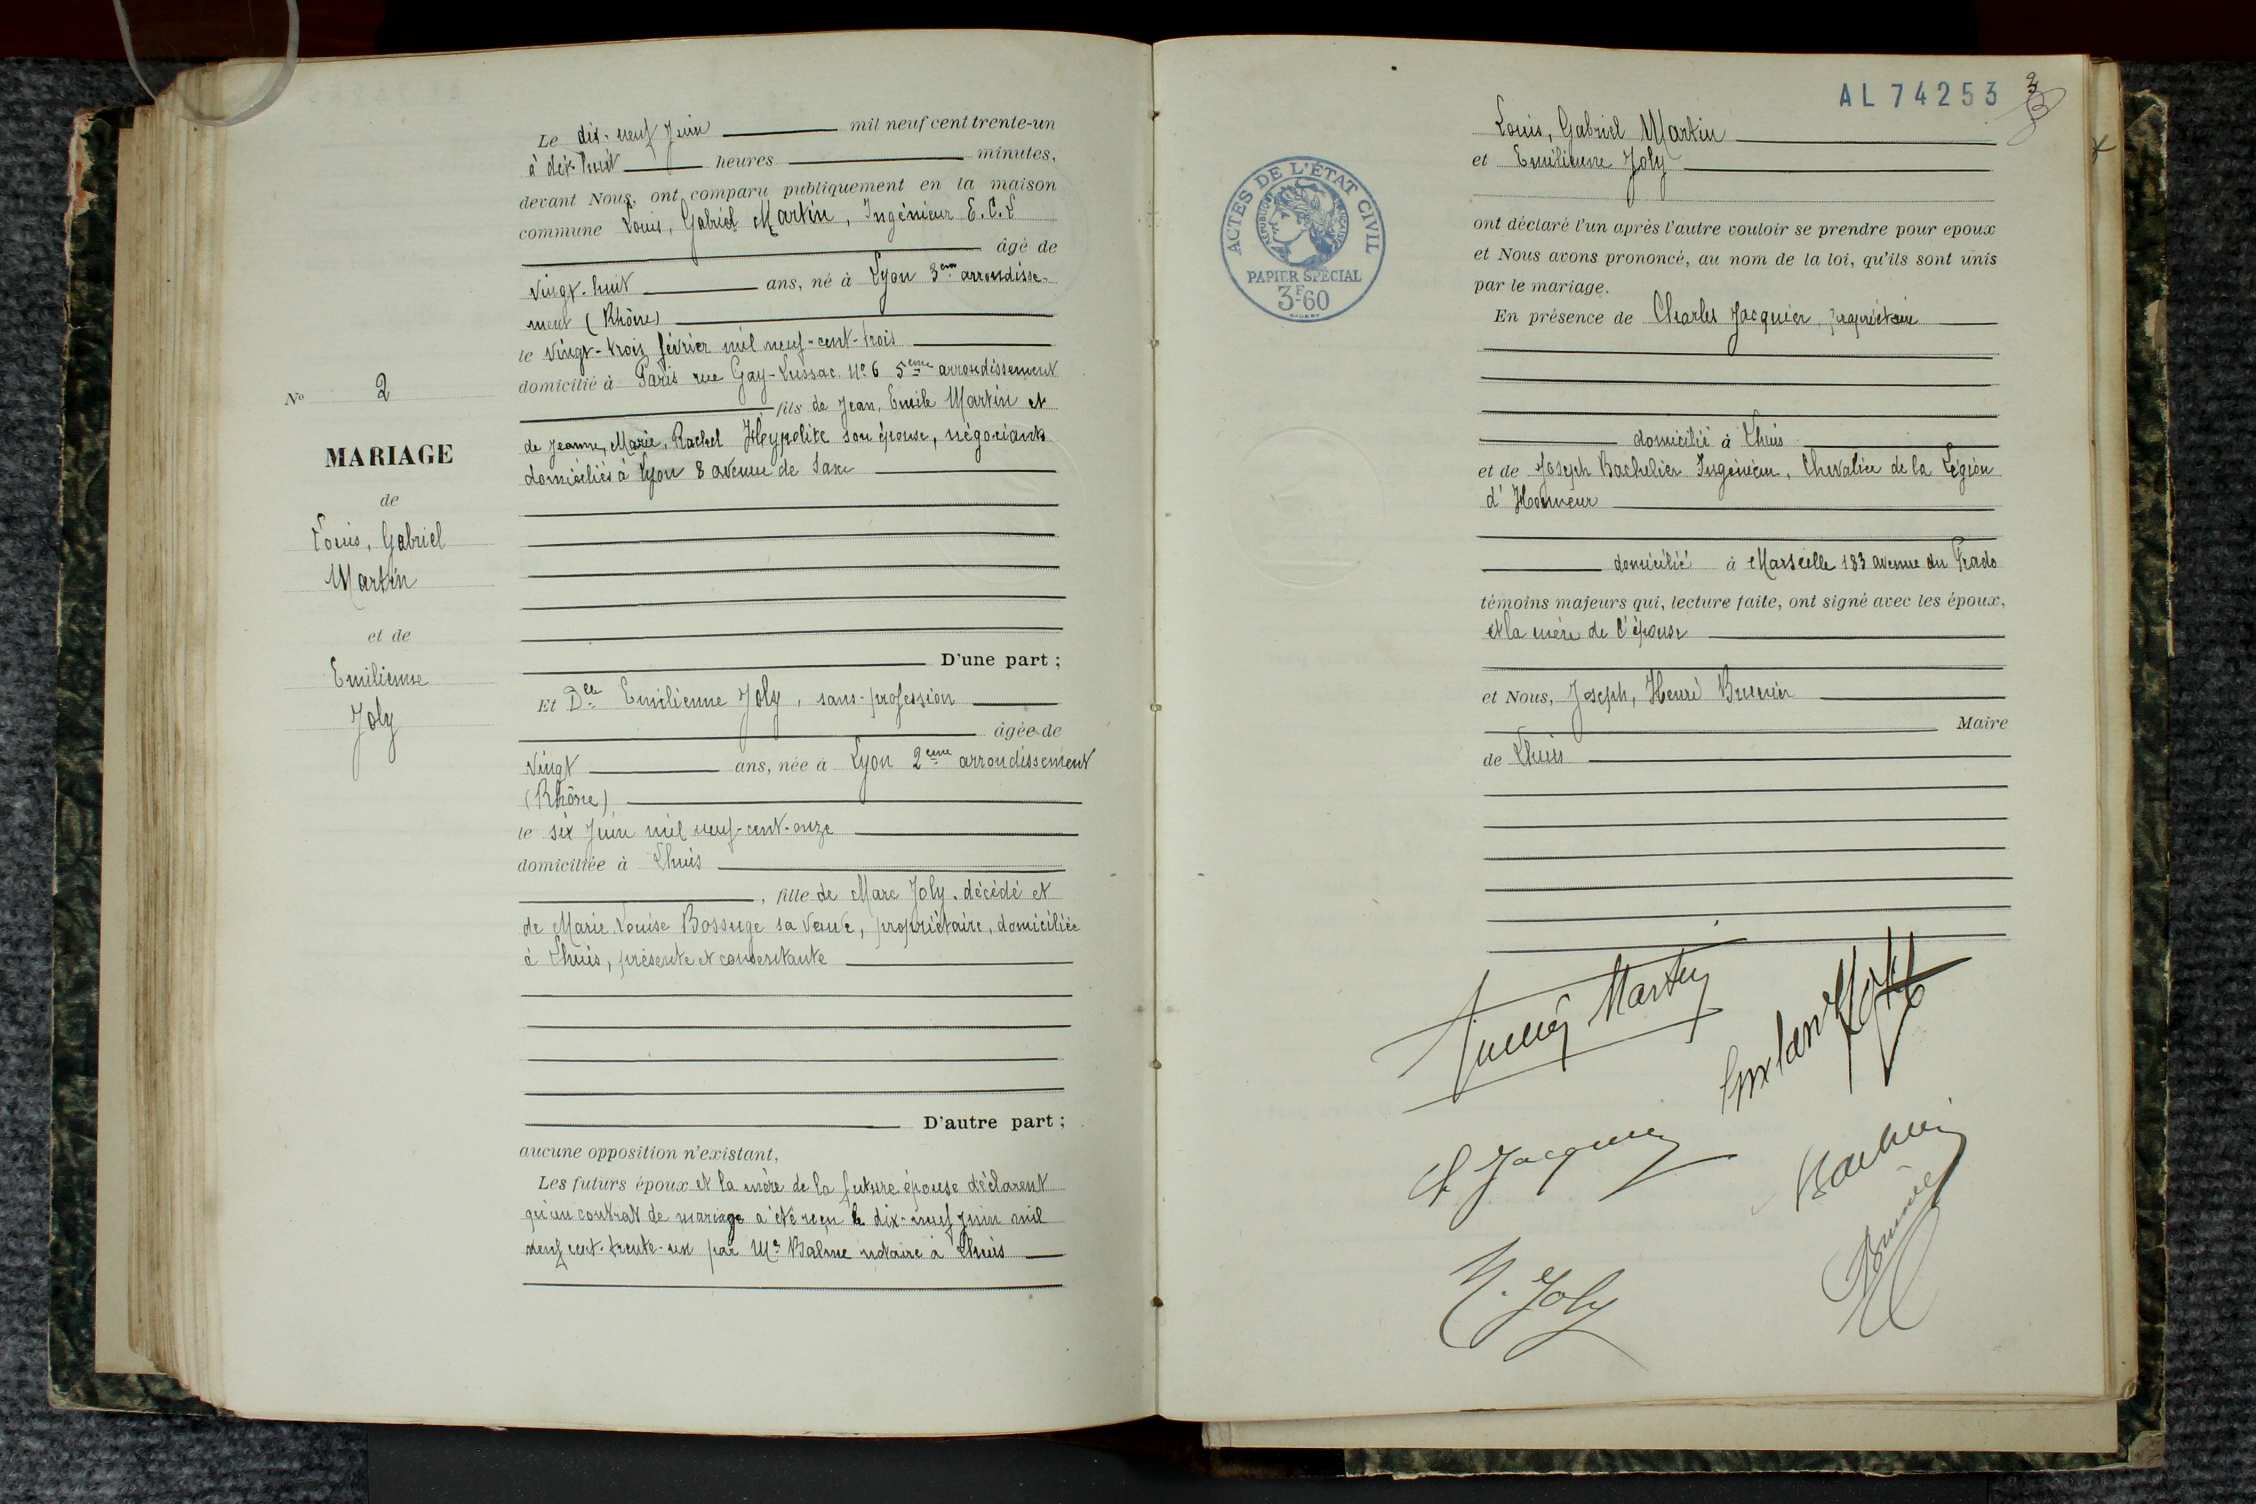 Le dix-neuf Juin mil neuf cent trente-un
à dix-huit heures minutes,
devant Nous, ont comparu publiquement en la maison
commune Louis, Gabriel Martin, Ingénieur E.C.L
âgé de
vingt-huit ans, né à Lyon 3eme arrondisse-
ment (Rhône)
le vingt-trois février mil neuf-cent-trois
domicilié à Paris rue Gay-Lussac No 6 5eme arrondissement
fils de Jean, Emile Martin et
de Jeanne, Marie, Rachel Heypolite son épouse, négociants
domiciliés à Lyon 8 avenue de Saxe
No 2
MARIAGE
de
Louis, Gabriel
Martin
et de
Emilienne
Joly
D'une part ;
Et Delle Emilienne Joly, sans-profession
âgée de
vingt ans, née à Lyon 2eme arrondissement
(Rhône)
le six Juin mil neuf-cent-onze
domiciliée à Lhuis
, fille de Marc Joly, décédé et
de Marie Louise Bossuge sa veuve, propriétaire, domiciliée
à Lhuis, présente et consentante
D'autre part ;
aucune opposition n'existant,
Les futurs époux et la mère de la future épouse déclarent
qu'un contrat de mariage a été reçu le dix-neuf juin mil
neuf cent-trente-un par Me Balme notaire à Lhuis
AL 74253
ACTES DE L'ÉTAT CIVIL
RÉPUBLIQUE FRANÇAISE
PAPIER SPÉCIAL
3F60
Louis, Gabriel Martin
et Emilienne Joly
ont déclaré l'un après l'autre vouloir se prendre pour epoux
et Nous avons prononcé, au nom de la loi, qu'ils sont unis
par le mariage.
En présence de Charles Jacquier, propriétaire
domicilié à Lhuis
et de Joseph Bachelier Ingénieur, Chevalier de la Légion
d'Honneur
domicilié à Marseille 183 avenue du Prado
témoins majeurs qui, lecture faite, ont signé avec les époux,
et la mère de l'épouse
et Nous, Joseph, Henri Brunier
Maire
de Lhuis
Martin
C. Jacquier
Bachelier
Brunier
M. Joly